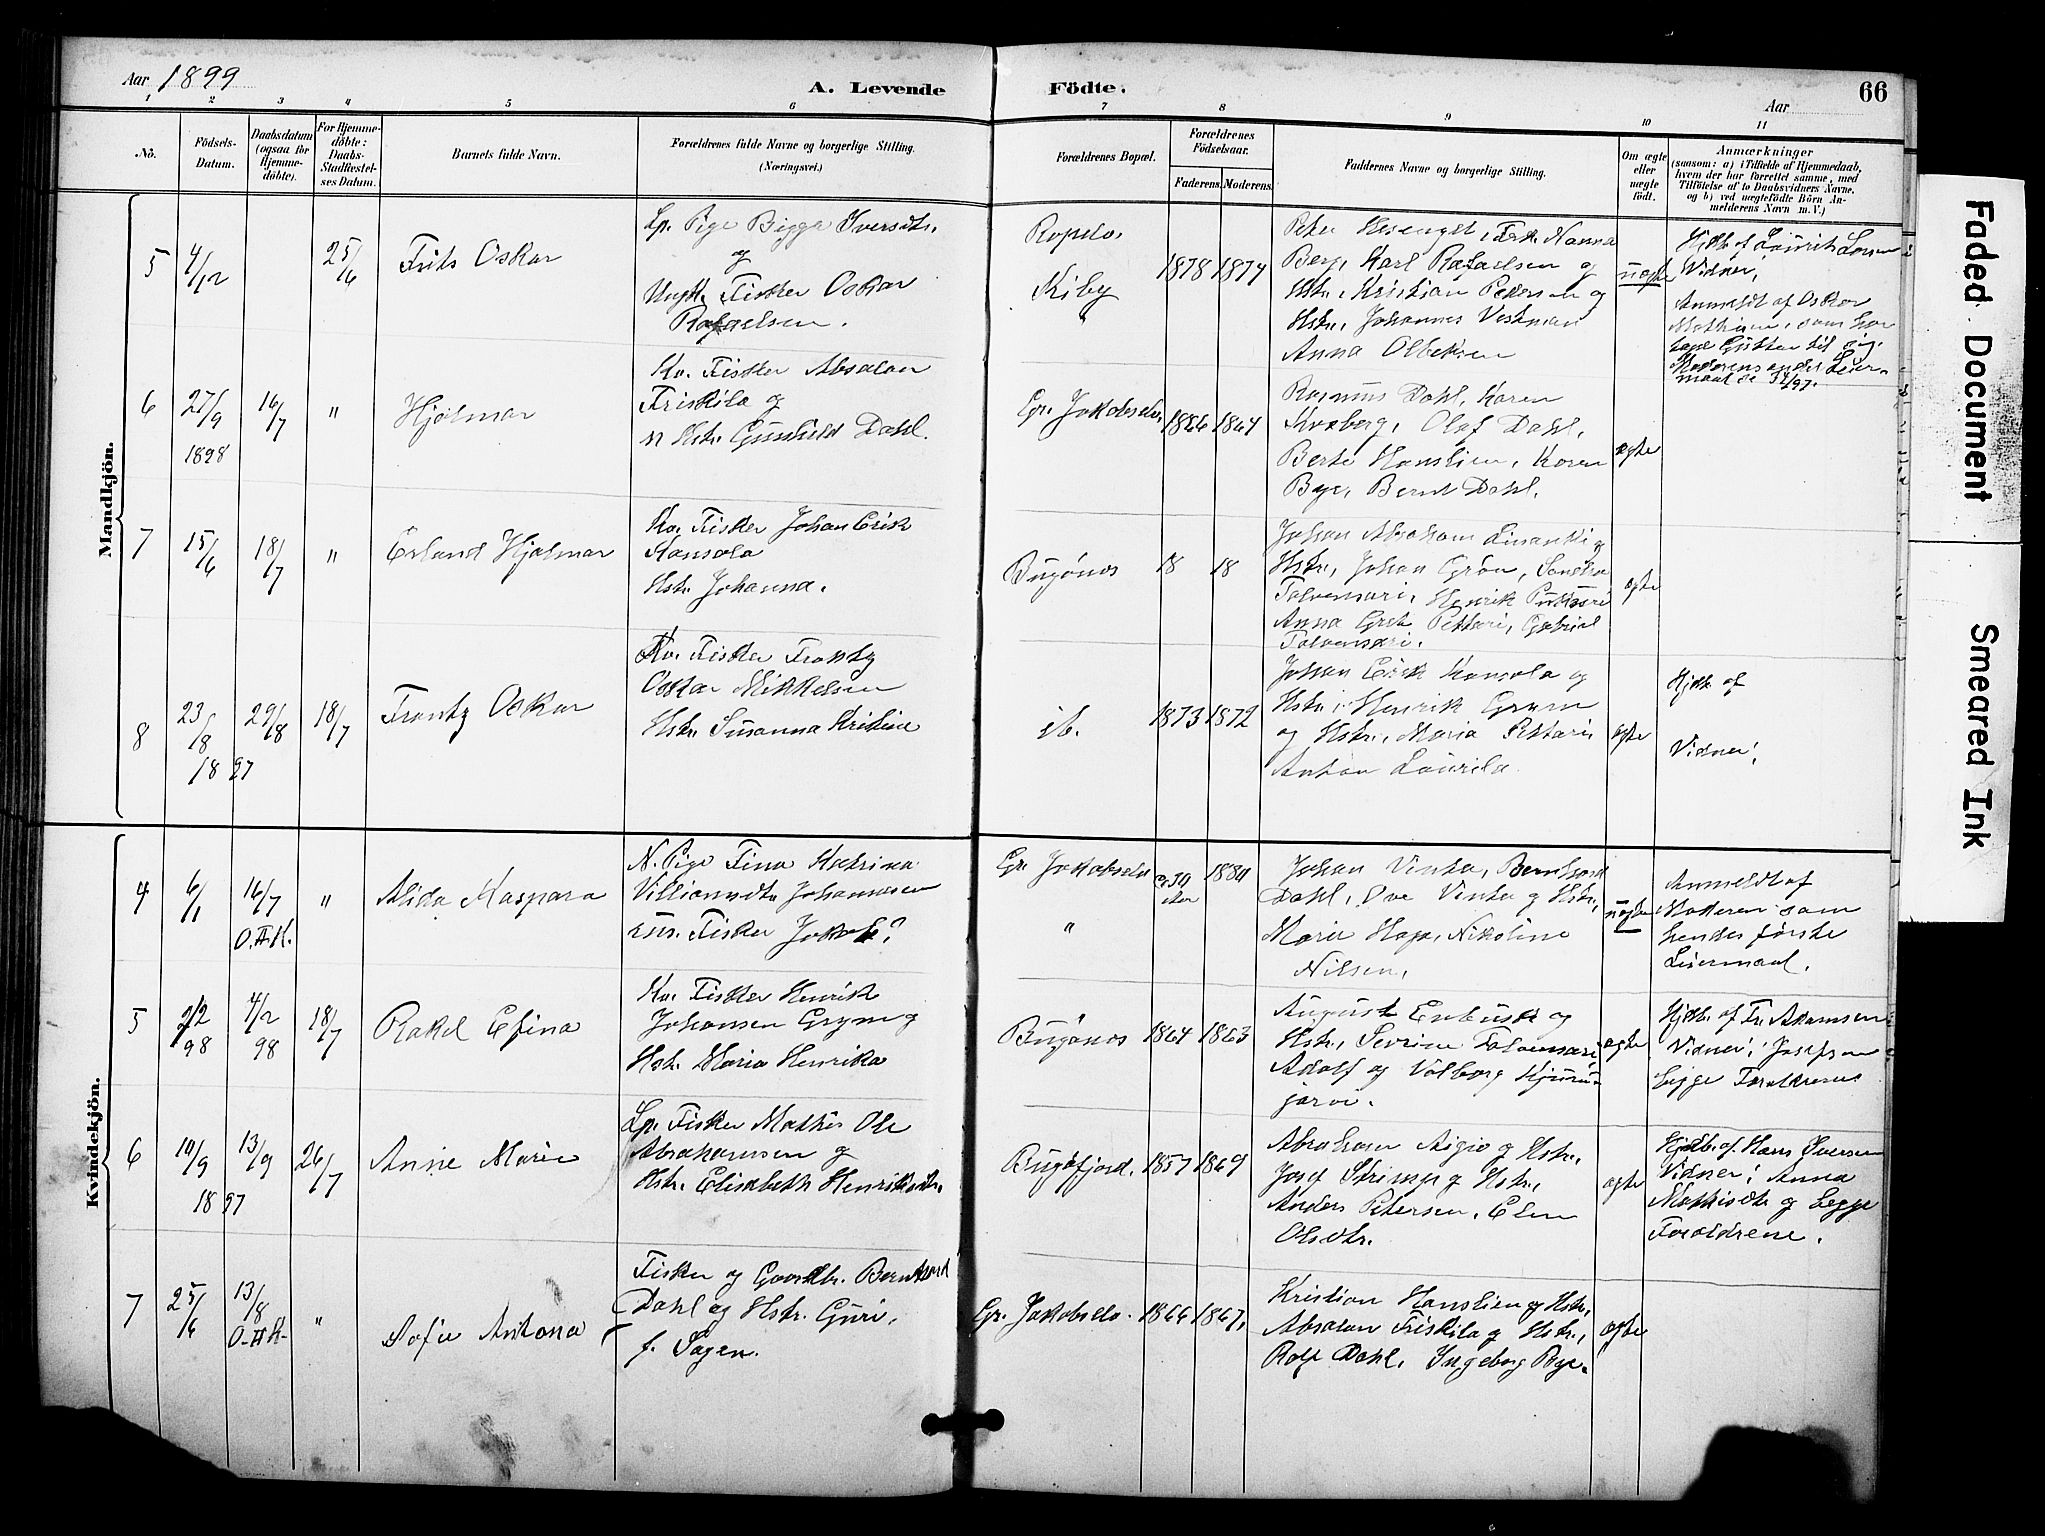 Aar 1899
A. Levende
Födte.
Aar
66
1 2 3 4 5 6 7 8 9 10 11
No.
Födsels-
Datum.
Daabsdatum
(ogsaa for
Hjemme-
döbte).
For Hjemme-
döbte:
Daabs-
Stadfæstel-
ses Datum.
Barnets fulde Navn.
Forældrenes fulde Navne og borgerlige Stilling.
(Næringsvei.)
Forældrenes Bopæl.
Forældrenes
Födselsaar.
Faderens.
Moderens.
Faddernes Navne og borgerlige Stilling.
Om ægte
eller
uægte
födt.
Anmærkninger
(saasom: a) i Tilfælde af Hjemmedaab,
hvem der har forrettet samme, med
Tilföielse af to Daabsvidners Navne,
og b) ved uægtefödte Börn An-
melderens Navn m. V.)
Mandkjön.
5
4/12
25/6
Frits Oskar
Lp. Pige Bigga Iversdtr.
og
Ungk. Fisker Oskar
Rafaelsen.
Kiby
"
1878
1874
Berg, Karl Rafaelsen og
Hstr., Kristian Pedersen og
Hstr., Johannes Vestman
Anna Olbeksen
uægte
Hjdb. af Laurits
Vidner,
Anmeldt af Oskar
6
27/9
1898
16/7
"
Hjalmar
Kv. Fisker Absalon
Friskila og
Hstr. Gunhild Dahl.
Gr. Jakobselv
1866
1864
Rasmus Dahl, Karen
Kvaberg, Olaf Dahl,
Berte Hanslien, Karen
Bye, Bernt Dahl.
ægte
7
15/6
18/7
"
Erland Hjalmar
Kv. Fisker Johan Erik
Kansola
Hstr. Johanna.
Bugönes
18
18
Johan Abraham
Hstr., Johan Grön,
Talvensari, Henrik
Anna Gret Pettari, Gabriel
Talvensari.
ægte
8
23/8
1897
29/8
18/7
Frantz Oskar
Kv. Fisker Frantz
Oskar Mikkelsen
Hstr. Susanna Kristine
ib.
1873
1872
Johan Erik Kansola og
Hstr., Henrik Gram
og Hstr., Maria Pettari
Anton Laurila
ægte
Hjdb. af
Vidner:
Kvindekjön.
4
6/1
16/7
O.II.K.
"
Alida Kaspara
N. Pige Fina Katrina
Villiamsdtr. Johannesen
Fisker Jakob?
Gr. Jakobselv
"
1880
Johan Vinka, Bernhard
Dahl, Ove Vinka og Hstr.,
Marie Hap, Nikoline
Nilsen,
uægte
Anmeldt af
Moderen som
hendes förste
Leiermaal.
5
2/2
98
4/2
98
18/7
Rakel Efina
Kv. Fisker Henrik
Johansen Gram og
Hstr. Maria Henrika
Bugönes
1864
1863
August Enbusk og
Hstr., Sevrine Talvensari
Adolf og Valborg
järvi.
ægte
Hjdb. af Fr. Adamsen
Vidner: Josefsen
begge Forældrene
6
10/9
1897
13/9
26/7
Anne Marie
Lp. Fisker Mathis Ole
Abrahamsen og
Hstr. Elisabeth Henriksdtr.
Bugöfjord.
1857
1869
Abraham Aigio og Hstr.,
Josef Strimp og Hstr.,
Anders Petersen, Elen
Olsdtr.
ægte
Hjdb. af Hans Iversen
Vidner: Anna
Mathisdtr. og begge
Forældrene.
7
25/6
13/8
O.II.K.
"
Sofie Antona
Fisker og Gaardbr. Bernhard
Dahl og Hstr. Guri,
f. Sagen.
Gr. Jakobselv.
1866
1867,
Kristian Hanslien og Hstr.,
Absalon Friskila og Hstr.,
Rolf Dahl, Ingeborg Bye.
ægte
Faded Document
Smeared Ink